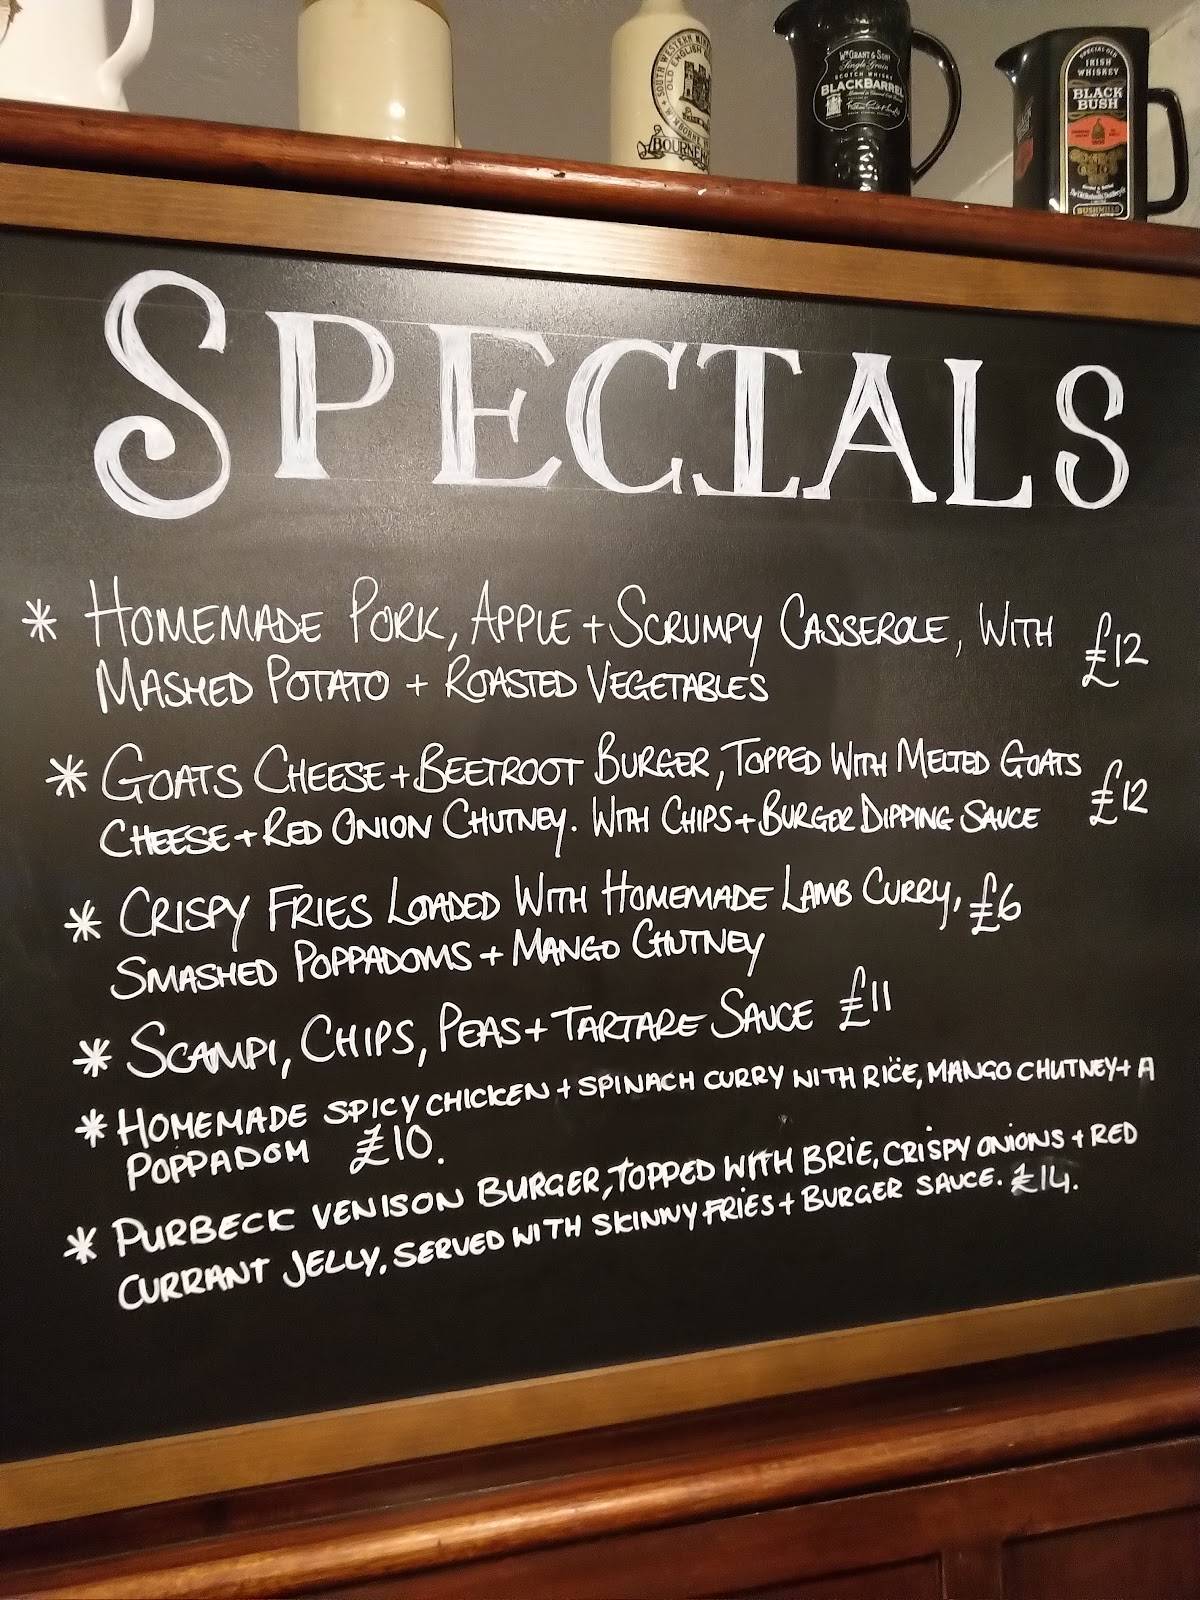 SOUTH WESTERN
OLD ENGLISH
BOURNE
Wm GRANT & SONS
Single Grain
SCOTCH WHISKY
BLACK BARREL
SPECIAL OLD
IRISH
WHISKEY
BLACK
BUSH
BUSHMILLS
SPECIALS
* HOMEMADE PORK, APPLE + SCRUMPY CASSEROLE, WITH £12
MASHED POTATO + ROASTED VEGETABLES
* GOATS CHEESE + BEETROOT BURGER, TOPPED WITH MELTED GOATS £12
CHEESE + RED ONION CHUTNEY. WITH CHIPS + BURGER DIPPING SAUCE
* CRISPY FRIES LOADED WITH HOMEMADE LAMB CURRY, £6
SMASHED POPPADOMS + MANGO CHUTNEY
* SCAMPI, CHIPS, PEAS + TARTARE SAUCE £11
* HOMEMADE SPICY CHICKEN + SPINACH CURRY WITH RICE, MANGO CHUTNEY + A
POPPADOM £10.
* PURBECK VENISON BURGER, TOPPED WITH BRIE, CRISPY ONIONS + RED
CURRANT JELLY. SERVED WITH SKINNY FRIES + BURGER SAUCE. £14.